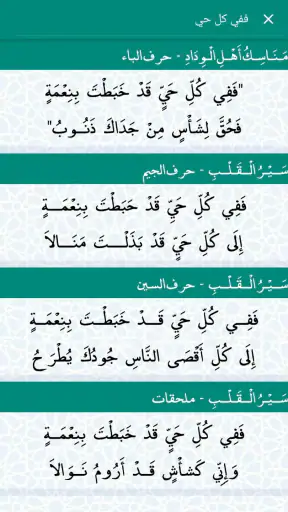 ففي كل حي
مَنَاسِكُ أَهْلِ الْوِدَادِ - حرف الباء
"فَفِي كُلِّ حَيٍّ قَدْ خَبَطْتَ بِنِعْمَةٍ
فَحُقَّ لِشَأْسٍ مِنْ جَدَاكَ ذَنُوبُ"
سَيْرُ الْقَلْبِ - حرف الجيم
فَفِي كُلِّ حَيٍّ قَدْ حَبَطْتَ بِنِعْمَةٍ
إِلَى كُلِّ حَيٍّ قَدْ بَذَلْتَ مَنَالاَ
سَيْرُ الْقَلْبِ - حرف السين
فَفِي كُلِّ حَيٍّ قَدْ خَبَطْتَ بِنِعْمَةٍ
إِلَى كُلِّ أَقْصَى النَّاسِ جُودُكَ يُطْرَحُ
سَيْرُ الْقَلْبِ - ملحقات
فَفِي كُلِّ حَيٍّ قَدْ خَبَطْتَ بِنِعْمَةٍ
وَإِنِّي كَشأْسٍ قَدْ أَرُومُ نَوَالاَ